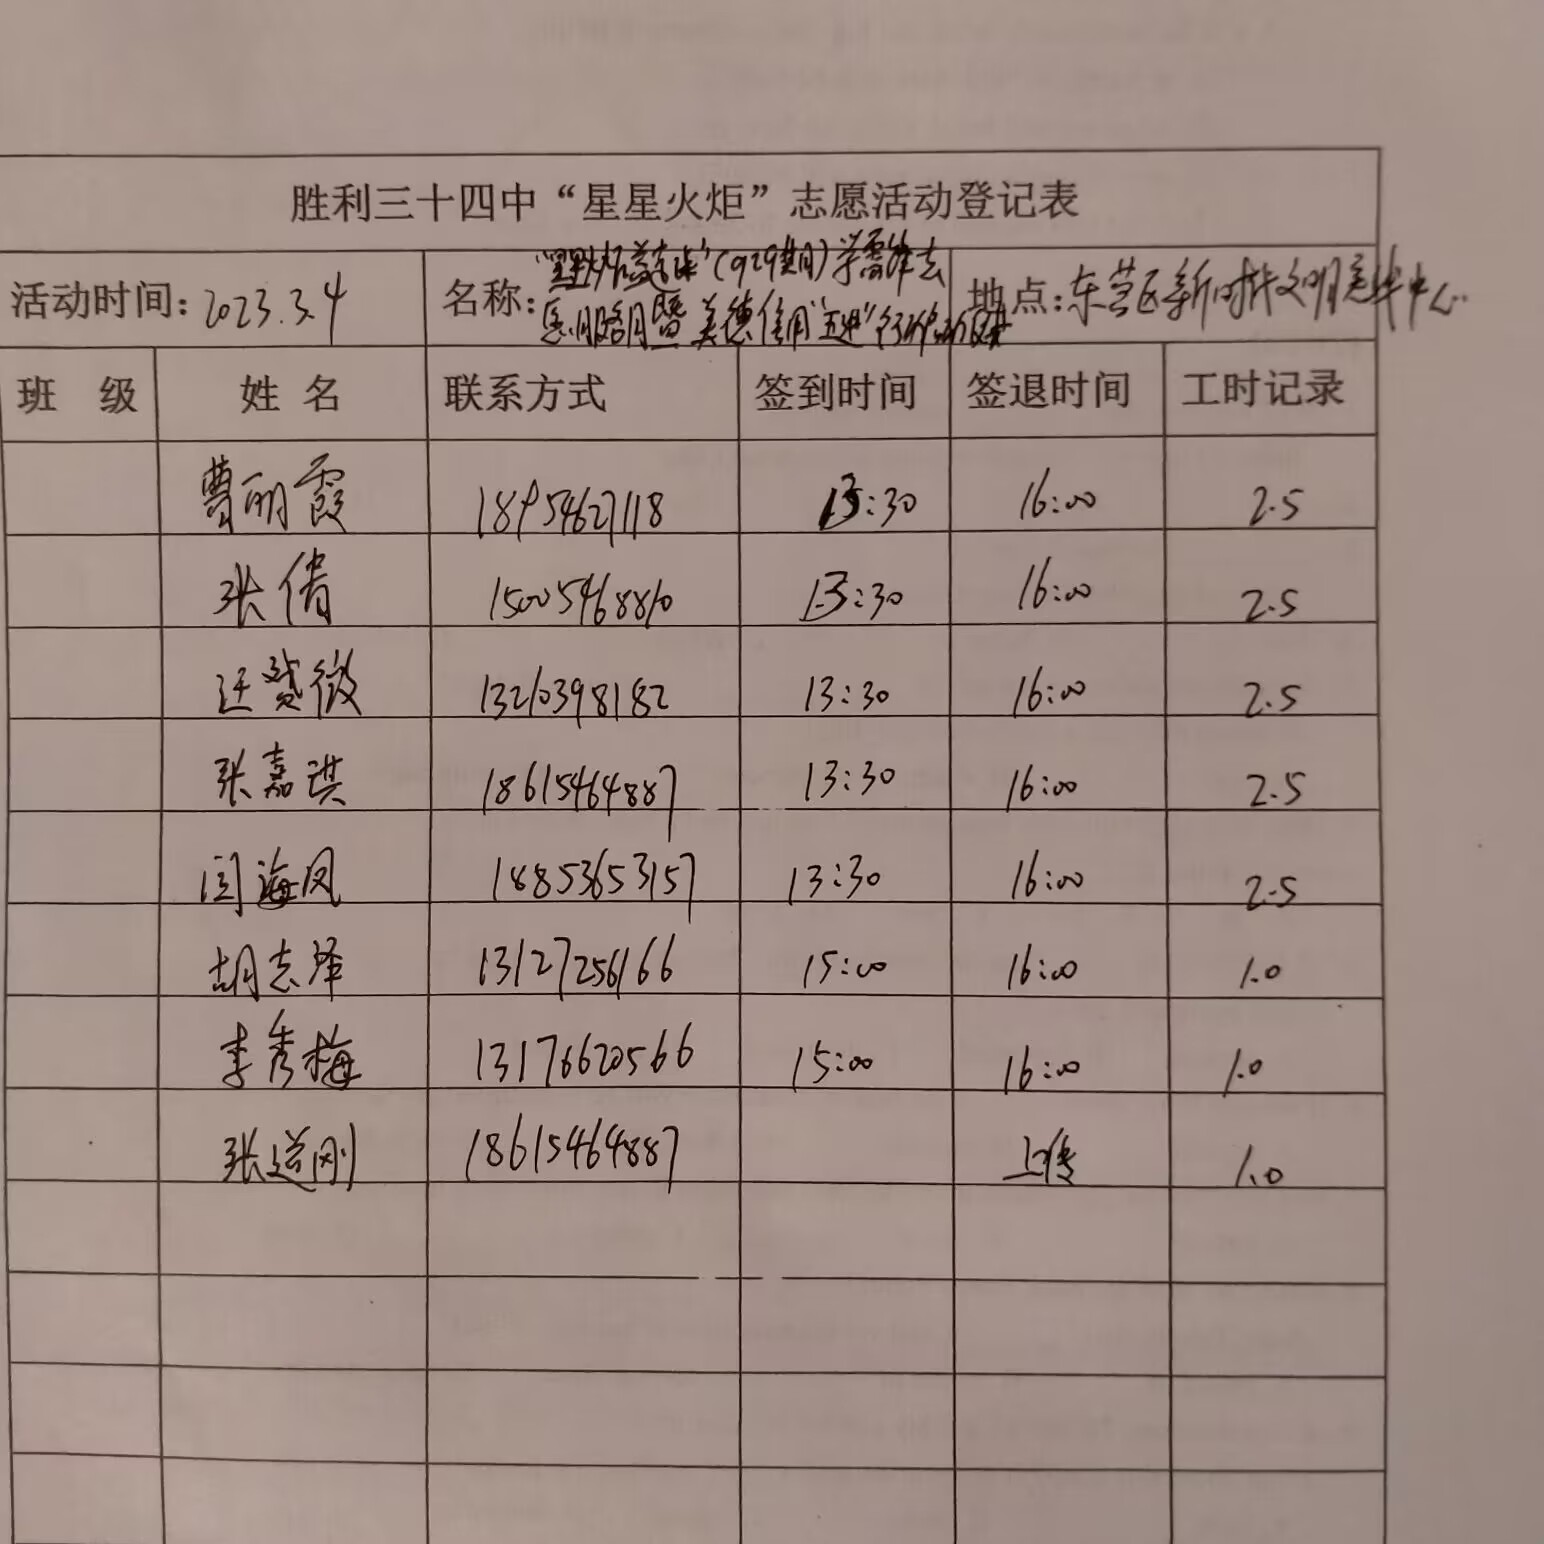 胜利三十四中“星星火炬”志愿活动登记表
活动时间: 2023.3.4 名称: (929期)学雷锋 美德信用 地点: 东营区新时代文明实践中心
班 级 姓 名 联系方式 签到时间 签退时间 工时记录
曹丽霞 18954627118 13:30 16:00 2.5
张倩 15005468810 13:30 16:00 2.5
贤微 13210398182 13:30 16:00 2.5
张嘉琪 18615464887 13:30 16:00 2.5
闫海凤 18853653157 13:30 16:00 2.5
胡志泽 13127256166 15:00 16:00 1.0
李秀梅 13176620566 15:00 16:00 1.0
张道刚 18615464887 上传 1.0